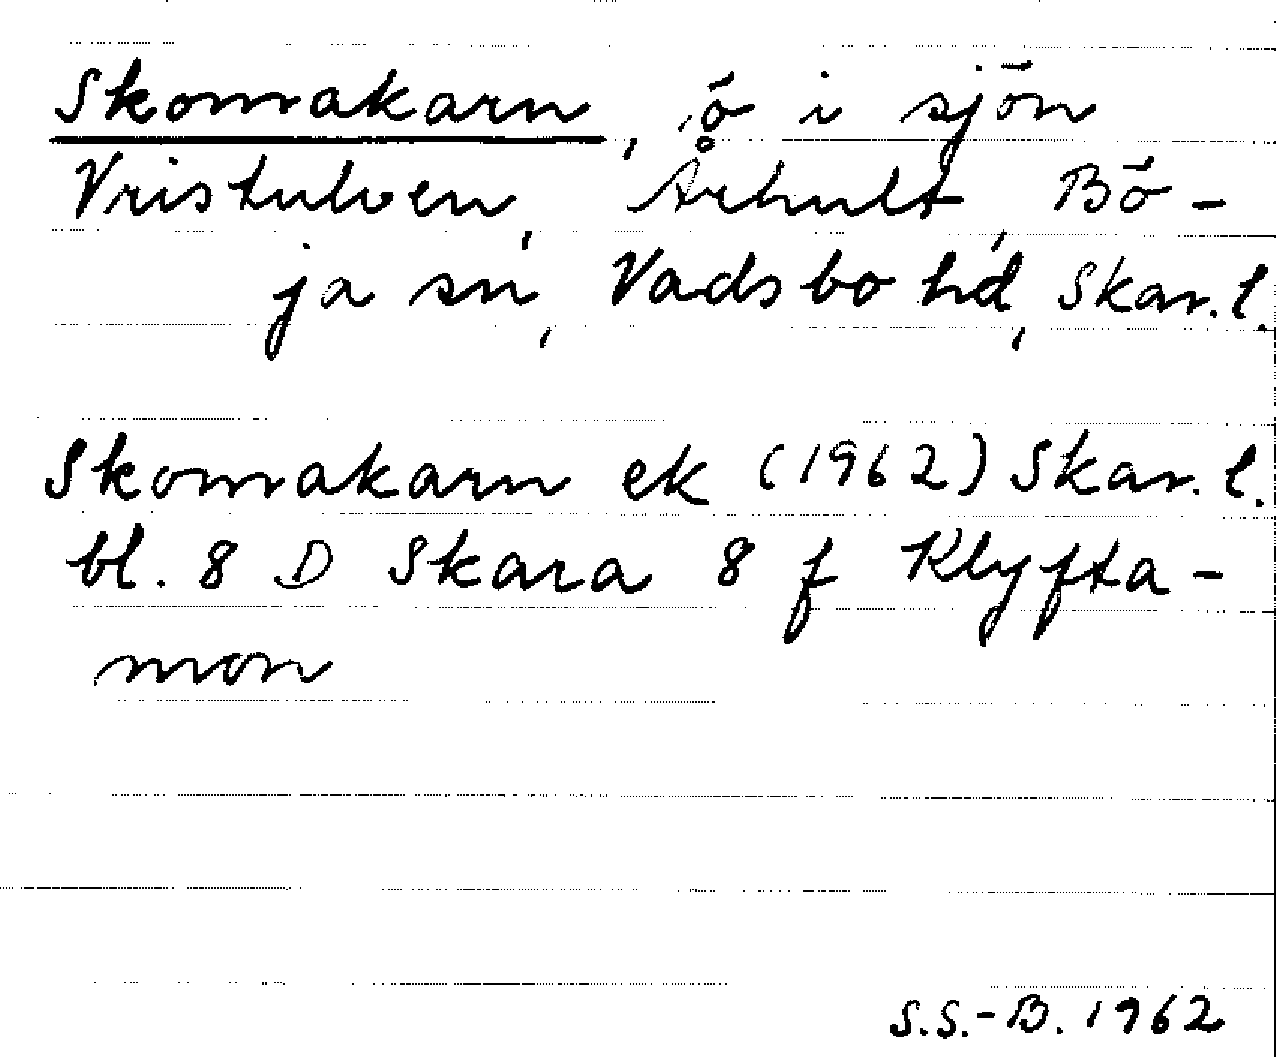 Skomakarn, ö i sjön
Vristulven, Århult, Bö-
ja sn, Vadsbo hd, Skar.l.
Skomakarn ek (1962) Skar.l.
bl. 8 D Skara 8 f Klyfta-
mon
S.S.-B. 1962